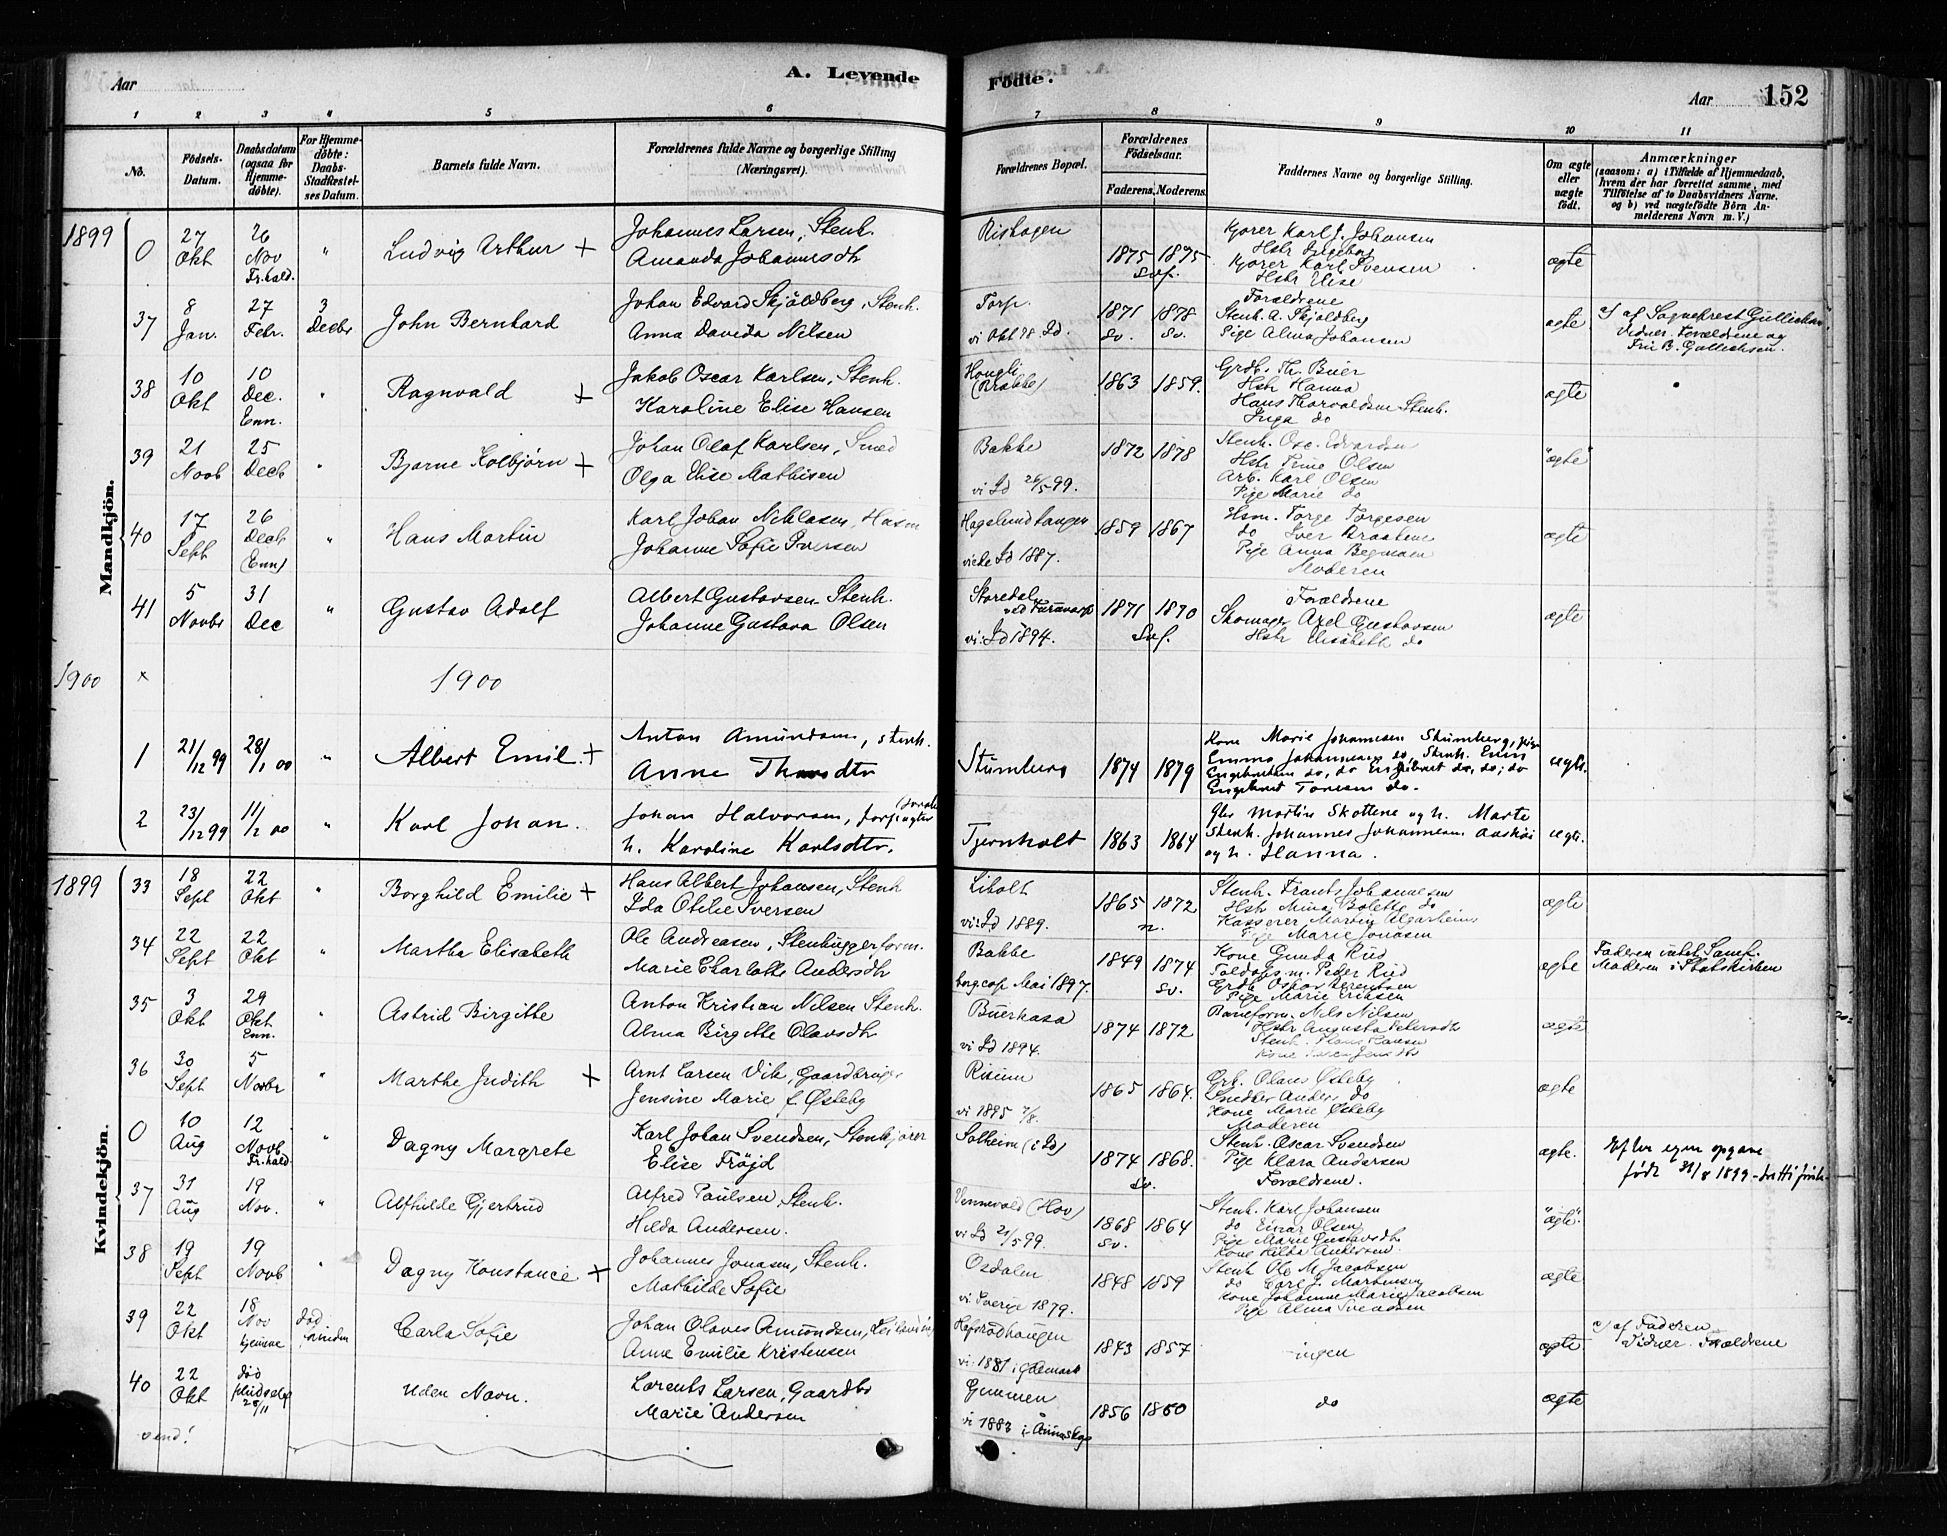 Aar
A. Levende
Födte.
Aar
152
1 2 3 4 5 6 7 8 9 10 11
No.
Födsels-Datum.
Daabsdatum (ogsaa for Hjemme-döbte).
For Hjemme-döbte: Daabs-Stadfæstelses Datum.
Barnets fulde Navn.
Forældrenes fulde Navne og borgerlige Stilling (Næringsvei).
Forældrenes Bopæl.
Forældrenes Födselsaar.
Faderens. Moderens.
Faddernes Navne og borgerlige Stilling.
Om ægte eller uægte födt.
Anmærkninger
(saasom: a) i Tilfælde af Hjemmedaab,
hvem der har forrettet samme, med
Tilföielse af to Daabsvidners Navne.
og b) ved uægtefödte Börn An-
melderens Navn m. V.)
Mandkjön.
1899
0 27 Okt 26 Nov Fr.hald. " Ludvig Arthur +
Johannes Larsen, Stenh.
Amanda Johannesdt
Rishagen
1875 1875
Svf.
Kjører Karl J. Johansen
Hstr Ingeborg
Kjører Karl Svensen
Hstr Elise
ægte
37 8 Jan. 27 Febr. 3 Decbr John Bernhard
Johan Edvard Skjöldberg, Stenh.
Anna Davida Nilsen
Torp.
vi Okt 98 Id.
1871 1878
Sv. Sv.
Forældrene
Stenh. A. Skjoldberg
Pige Alma Johansen
ægte
a) af Sogneprest Gullichsen
Vidner. Forældrene og
Fru B. Gullichsen.
38 10 Okt 10 Dec. Enn. " Ragnvald +
Jakob Oscar Karlsen, Stenh.
Karoline Elise Hansen
Hougli
1863 1859.
Grdb. Th. Buer
Hstr Hanna
Hans Thorvaldsen Stenh.
Inga do
ægte
39 21 Novb 25 Decb " Bjarne Kolbjørn +
Johan Olaf Karlsen, Smed
Olga Elise Mathisen
Bakke
vi Id 26/5 99.
1872 1878
Stenh. Osc. Edvardsen
Hstr Trine Olsen
Arb. Karl Olsen
Pige Marie do
"ægte"
40 17 Sept 26 Decb (Enn) " Hans Martin
Karl Johan Niklasen, Husm
Johanne Sofie Iversen
Hagelundhaugen
viede Id 1887.
1859 1867
Hsm. Torge Torgesen
do Iver Braatene
Pige Anna Begmoen
Moderen
ægte
41 5 Novbr 31 Dec " Gustav Adolf
Albert Gustavsen Stenh.
Johanne Gustava Olsen
Storedal
vi: Id 1894.
1871 1870
Svf.
Forældrene
Skomager Axel Gustavsen
Hstr Elisabeth do
ægte
1900 × 1900
1 21/12 99 28/1 00 " Albert Emil. +
Anton Amundsen, stenh.
Anne Thorsdtr
Stumberg
1874 1879
Kone Marie Johannesen Stumberg, pige
Emma Johannesen do, Stenh. Enn
Engebretsen do, do Engebret do, do; do
Engebret Toresen do.
ægte.
2 23/12 99 11/2 00 " Karl Johan.
Johan Halvorsen, forpagter
h. Karoline Karlsdtr.
Tjernholt
1863 1864
Gbr Martin Skottene og h. Marte
Stenh. Johannes Johannesen
og h. Hanna.
ægte.
Kvindekjön.
1899
33 18 Sept 22 Okt " Borghild Emilie +
Hans Albert Johansen, Stenh
Ida Otilie Iversen
Liholt
vi: Id 1889.
1865 1872
n.
Stenh. Frants Johannesen
Hstr Mina Bolette do
Kasserer Martin Algarheim
Pige Marie Jonasen
ægte
34 22 Sept 22 Okt " Martha Elisabeth
Ole Andreasen, Stenhuggerform.
Marie Charlotte Andersdt
Bakke
borg. cop Mai 1897.
1849 1874
Sv.
Kone Gunda Ried
Toldops.m. Peder Ried
Grdb Oskar Berentsen
Pige Marie Eriksen
ægte
Faderen udtr. Samf.
Moderen i Statskirken
35 3 Okt 29 Okt Enn. " Astrid Birgitte
Anton Kristian Nilsen Stenh.
Alma Birgitte Olavsdt
Buerkasa
vi Id 1894.
1874 1872
Baneform. Nils Nilsen
Hstr Augusta Petersdt
Stenh. Hans Hansen
ægte
36 30 Sept 5 Novbr " Marthe Judith +
Arnt Larsen Vik, Gaardbruger
Jensine Marie f. Østeby
Risum
vi 1895 7/8.
1865 1864.
Grb. Olaus Østeby
Snedker Anders do
Kone Marie Østeby
Moderen
ægte
0 10 Aug 12 Novb Fr.hald. " Dagny Margrete
Karl Johan Svendsen, Stenkjører
Elise Frøjd
Solheim (i Id)
1874 1868.
Sv.
Stenh. Oscar Svendsen
Pige Klara Andersen
Forældrene.
ægte.
Efter egen opgave
født 31/8 1899
37 31 Aug 19 Nov. " Alfhilde Gjertrud
Alfred Paulsen, Stenh.
Hilda Andersen.
Vennevold (Hov)
vi Id 21/5 99.
1868 1864
Sv.
Stenh. Karl Johansen
do Einar Olsen
Pige Marie Gustavsdt
Kone Hilda Andersen
"ægte".
38 19 Sept 19 Novb " Dagny Konstance +
Johannes Jonasen, Stenh.
Mathilde Sofie
Osdalen
vi Sverige 1879.
1848 1859
Stenh Ole M. Jacobsen
do Carl J. Martinsen
Kone Johanne Marie Jacobsen
Pige Alma Svendsen
ægte
39 22 Okt 18 Nov hjemme død Carla Sofie
Johan Olaves Amundsen,
Anne Emilie Kristensen
Hafsrødhaugen
vi 1881 i Glemark
1843 1857
ingen
ægte
a) af Faderen
Vidner. Forældrene
40 22 Okt død pludselig 25/11 Uden Navn.
Lorents Larsen, Gaardbr
Marie Andersen
Grimsen
vi 1883 i Aremark
1856 1860
do
ægte
vend!